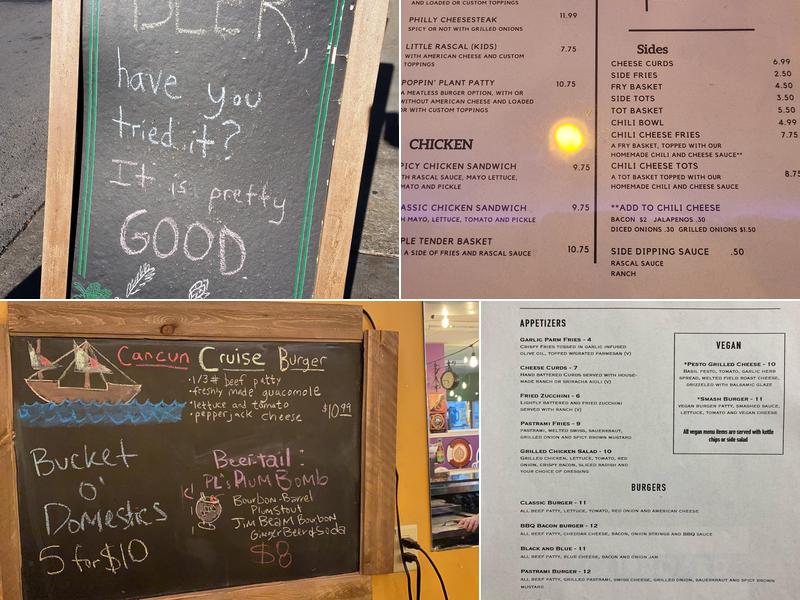 BEER,
have you
tried it?
It is pretty
GOOD
AND LOADED OR CUSTOM TOPPINGS
PHILLY CHEESESTEAK 11.99
SPICY OR NOT WITH GRILLED ONIONS
LITTLE RASCAL (KIDS) 7.75
WITH AMERICAN CHEESE AND CUSTOM
TOPPINGS
POPPIN' PLANT PATTY 10.75
A MEATLESS BURGER OPTION, WITH OR
WITHOUT AMERICAN CHEESE AND LOADED
OR WITH CUSTOM TOPPINGS
CHICKEN
PICY CHICKEN SANDWICH 9.75
TH RASCAL SAUCE, MAYO LETTUCE,
MATO AND PICKLE
ASSIC CHICKEN SANDWICH 9.75
H MAYO, LETTUCE, TOMATO AND PICKLE
PLE TENDER BASKET 10.75
A SIDE OF FRIES AND RASCAL SAUCE
Sides
CHEESE CURDS 6.99
SIDE FRIES 2.50
FRY BASKET 4.50
SIDE TOTS 3.50
TOT BASKET 5.50
CHILI BOWL 4.99
CHILI CHEESE FRIES 7.75
A FRY BASKET, TOPPED WITH OUR
HOMEMADE CHILI AND CHEESE SAUCE**
CHILI CHEESE TOTS 8.75
A TOT BASKET TOPPED WITH OUR
HOMEMADE CHILI AND CHEESE SAUCE
**ADD TO CHILI CHEESE
BACON $2 JALAPENOS .30
DICED ONIONS .30 GRILLED ONIONS $1.50
SIDE DIPPING SAUCE .50
RASCAL SAUCE
RANCH
Cancun Cruise Burger
•1/3# beef patty
•freshly made guacomole
•lettuce and tomato
•pepperjack cheese $10.99
Bucket
O'
Domestics
5 for $10
Beer-tail:
PL's Plum Bomb
Bourbon-Barrel
Plumstout
Jim Beam Bourbon
Ginger Beer & Soda
$8
APPETIZERS
GARLIC PARM FRIES - 4
CRISPY FRIES TOSSED IN GARLIC INFUSED
OLIVE OIL, TOPPED W/GRATED PARMESAN (V)
CHEESE CURDS - 7
HAND BATTERED CURDS SERVED WITH HOUSE-
MADE RANCH OR SRIRACHA AIOLI (V)
FRIED ZUCCHINI - 6
LIGHTLY BATTERED AND FRIED ZUCCHINI
SERVED WITH RANCH (V)
PASTRAMI FRIES - 9
PASTRAMI, MELTED SWISS, SAUERKRAUT,
GRILLED ONION AND SPICY BROWN MUSTARD
GRILLED CHICKEN SALAD - 10
GRILLED CHICKEN, LETTUCE, TOMATO, RED
ONION, CRISPY BACON, SLICED RADISH AND
YOUR CHOICE OF DRESSING
VEGAN
*PESTO GRILLED CHEESE - 10
BASIL PESTO, TOMATO, GARLIC HERB
SPREAD, MELTED FIELD ROAST CHEESE,
DRIZZELED WITH BALSAMIC GLAZE
*SMASH BURGER - 11
VEGAN BURGER PATTY, SMASHED SAUCE,
LETTUCE, TOMATO AND VEGAN CHEESE
All vegan menu items are served with kettle
chips or side salad
BURGERS
CLASSIC BURGER - 11
ALL BEEF PATTY, LETTUCE, TOMATO, RED ONION AND AMERICAN CHEESE
BBQ BACON BURGER - 12
ALL BEEF PATTY, CHEDDAR CHEESE, BACON, ONION STRINGS AND BBQ SAUCE
BLACK AND BLUE - 11
ALL BEEF PATTY, BLUE CHEESE, BACON AND ONION JAM
PASTRAMI BURGER - 12
ALL BEEF PATTY, GRILLED PASTRAMI, SWISS CHEESE, GRILLED ONION, SAUERKRAUT AND SPICY BROWN
MUSTARD